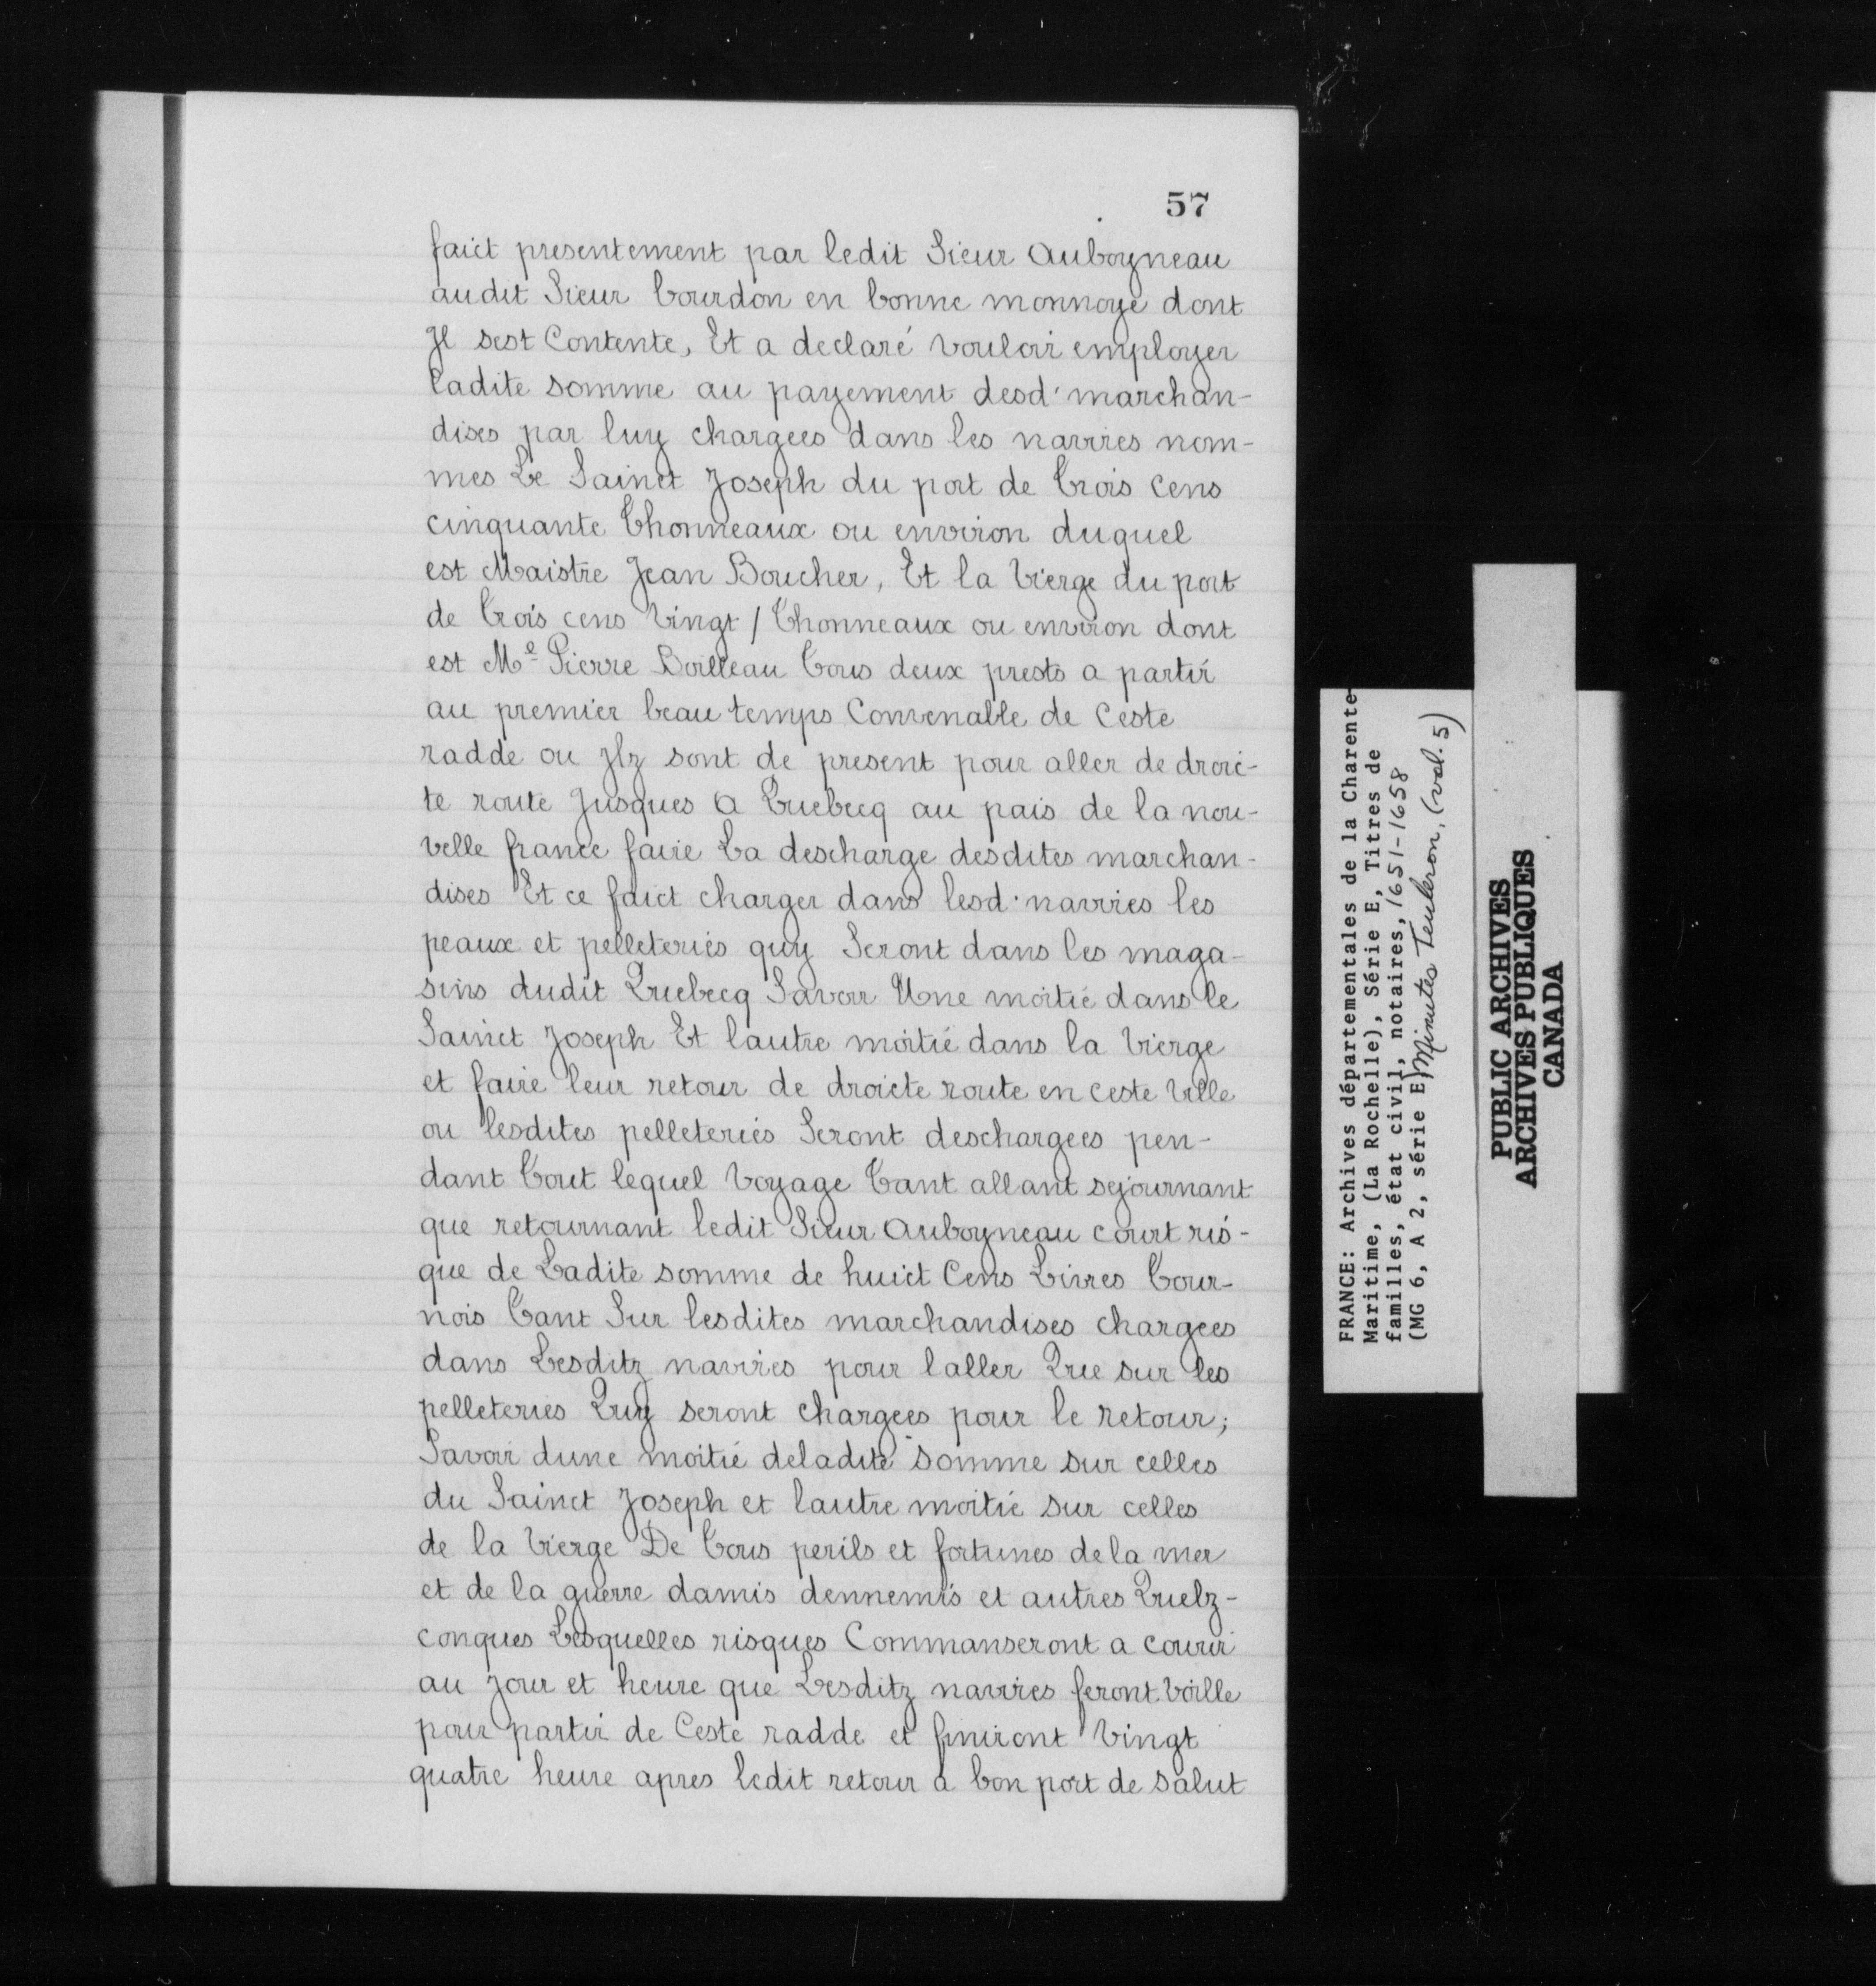 57
faict presentement par ledit Sieur Auboyneau
audit Sieur bourdon en bonne monnoye dont
Jl sest Contente, Et a declaré vouloir employer
ladite somme au payement desd. marchan-
dises par luy chargees dans les navires nom-
mes Le Sainct Joseph du port de Trois cens
cinquante Thonneaux ou environ duquel
est Maistre Jean Boucher, Et la Vierge du port
de Trois cens Vingt / Thonneaux ou environ dont
est Me Pierre Boilleau Tous deux prests a partir
au premier beau temps Convenable de Ceste
radde ou Jlz sont de present pour aller de droic-
te route Jusques A Quebecq au pais de la nou-
velle france faire La descharge desdites marchan-
dises Et ce faict charger dans lesd. navires les
peaux et pelleteries quy Seront dans les maga-
sins dudit Quebecq Savoir Une moitié dans le
Sainct Joseph Et lautre moitié dans la Vierge
et faire leur retour de droicte route en ceste Ville
ou lesdites pelleteries Seront deschargees pen-
dant Tout lequel Voyage Tant allant sejournant
que retournant ledit Sieur Auboyneau court ris-
que de Ladite somme de huict Cens Livres Tour-
nois Tant Sur lesdites marchandises chargees
dans Lesditz navires pour laller Que sur les
pelleteries Quy seront chargees pour le retour;
Savoir dune moitié deladite somme sur celles
du Sainct Joseph et lautre moitié sur celles
de la Vierge De Tous perils et fortunes de la mer
et de la guerre damis dennemis et autres Quelz-
conques Lesquelles risques Commanseront a courir
au Jour et heure que Lesditz navires feront Voille
pour partir de Ceste radde et finiront Vingt
quatre heure apres ledit retour a bon port de salut
FRANCE: Archives départementales de la Charente-
Maritime, (La Rochelle), Série E, Titres de
familles, état civil, notaires, 1651-1658
(MG 6, A 2, série E) Minutes Teuleron, (vol. 5)
PUBLIC ARCHIVES
ARCHIVES PUBLIQUES
CANADA